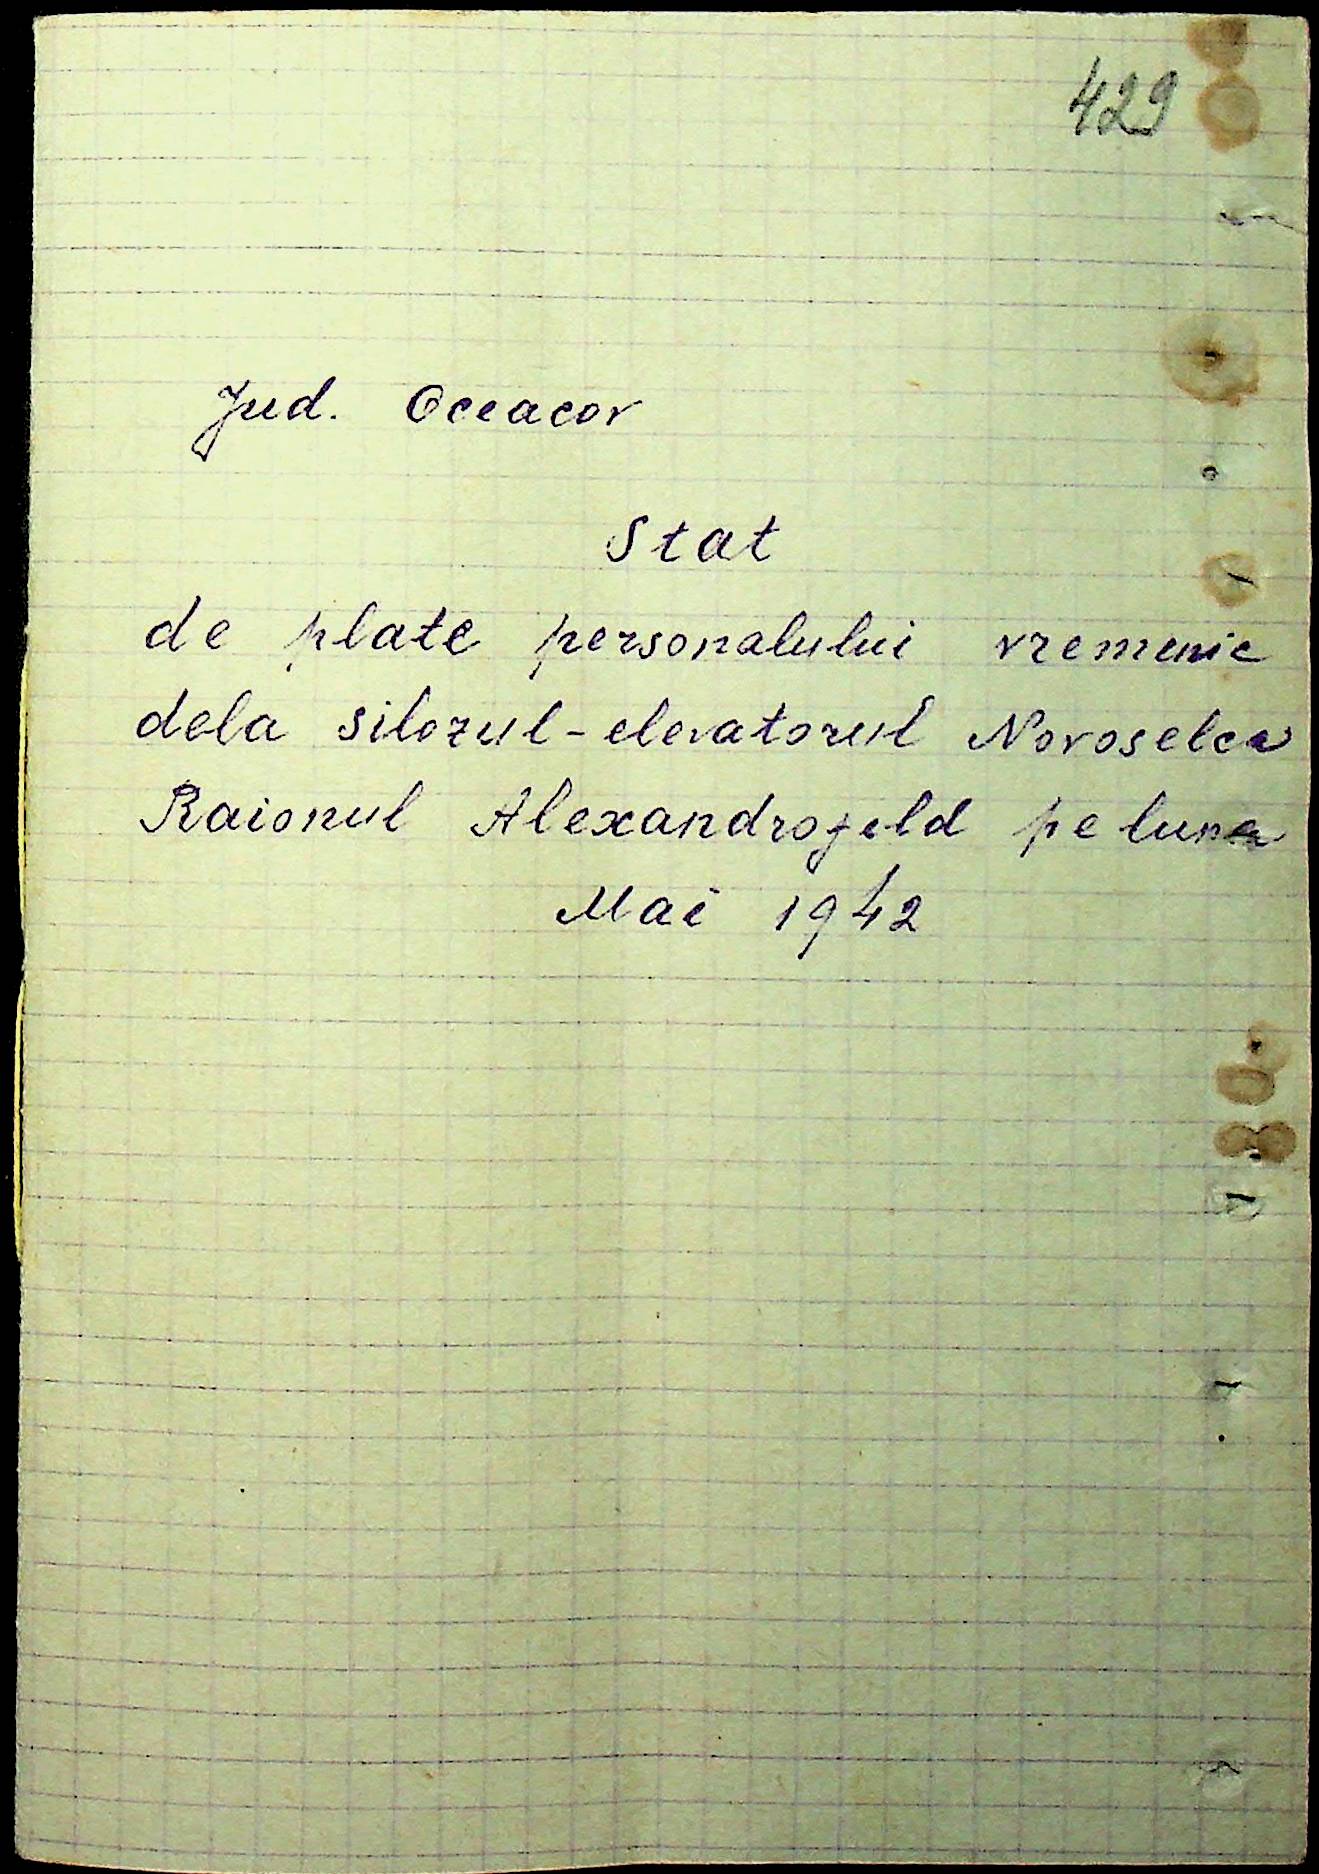 429
Jud. Oceacov
Stat
de plate personalului vremenic
dela silozul-elevatorul Novoselca
Raionul Alexandrofeld pe luna
Mai 1942